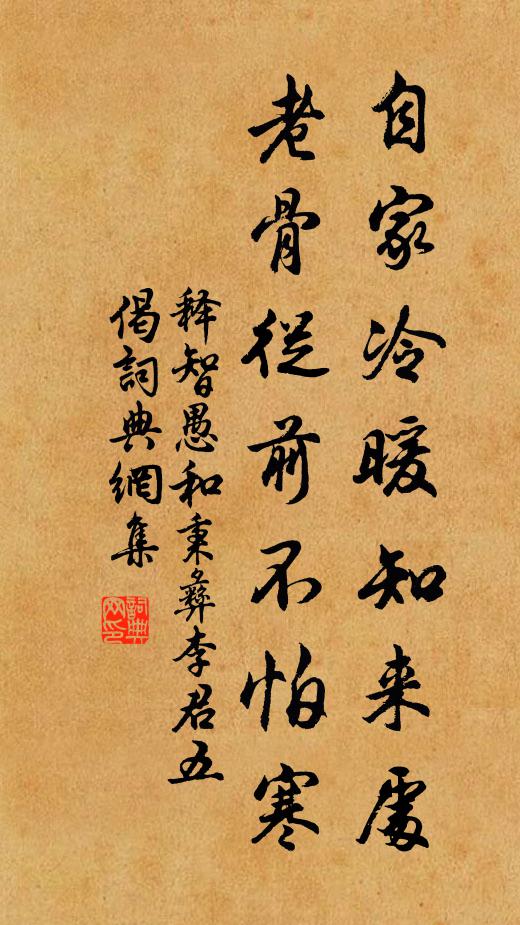 自家冷暖知来處
老骨從前不怕寒
释智愚和秉彝李君五
偈詞典網集
詞典网印